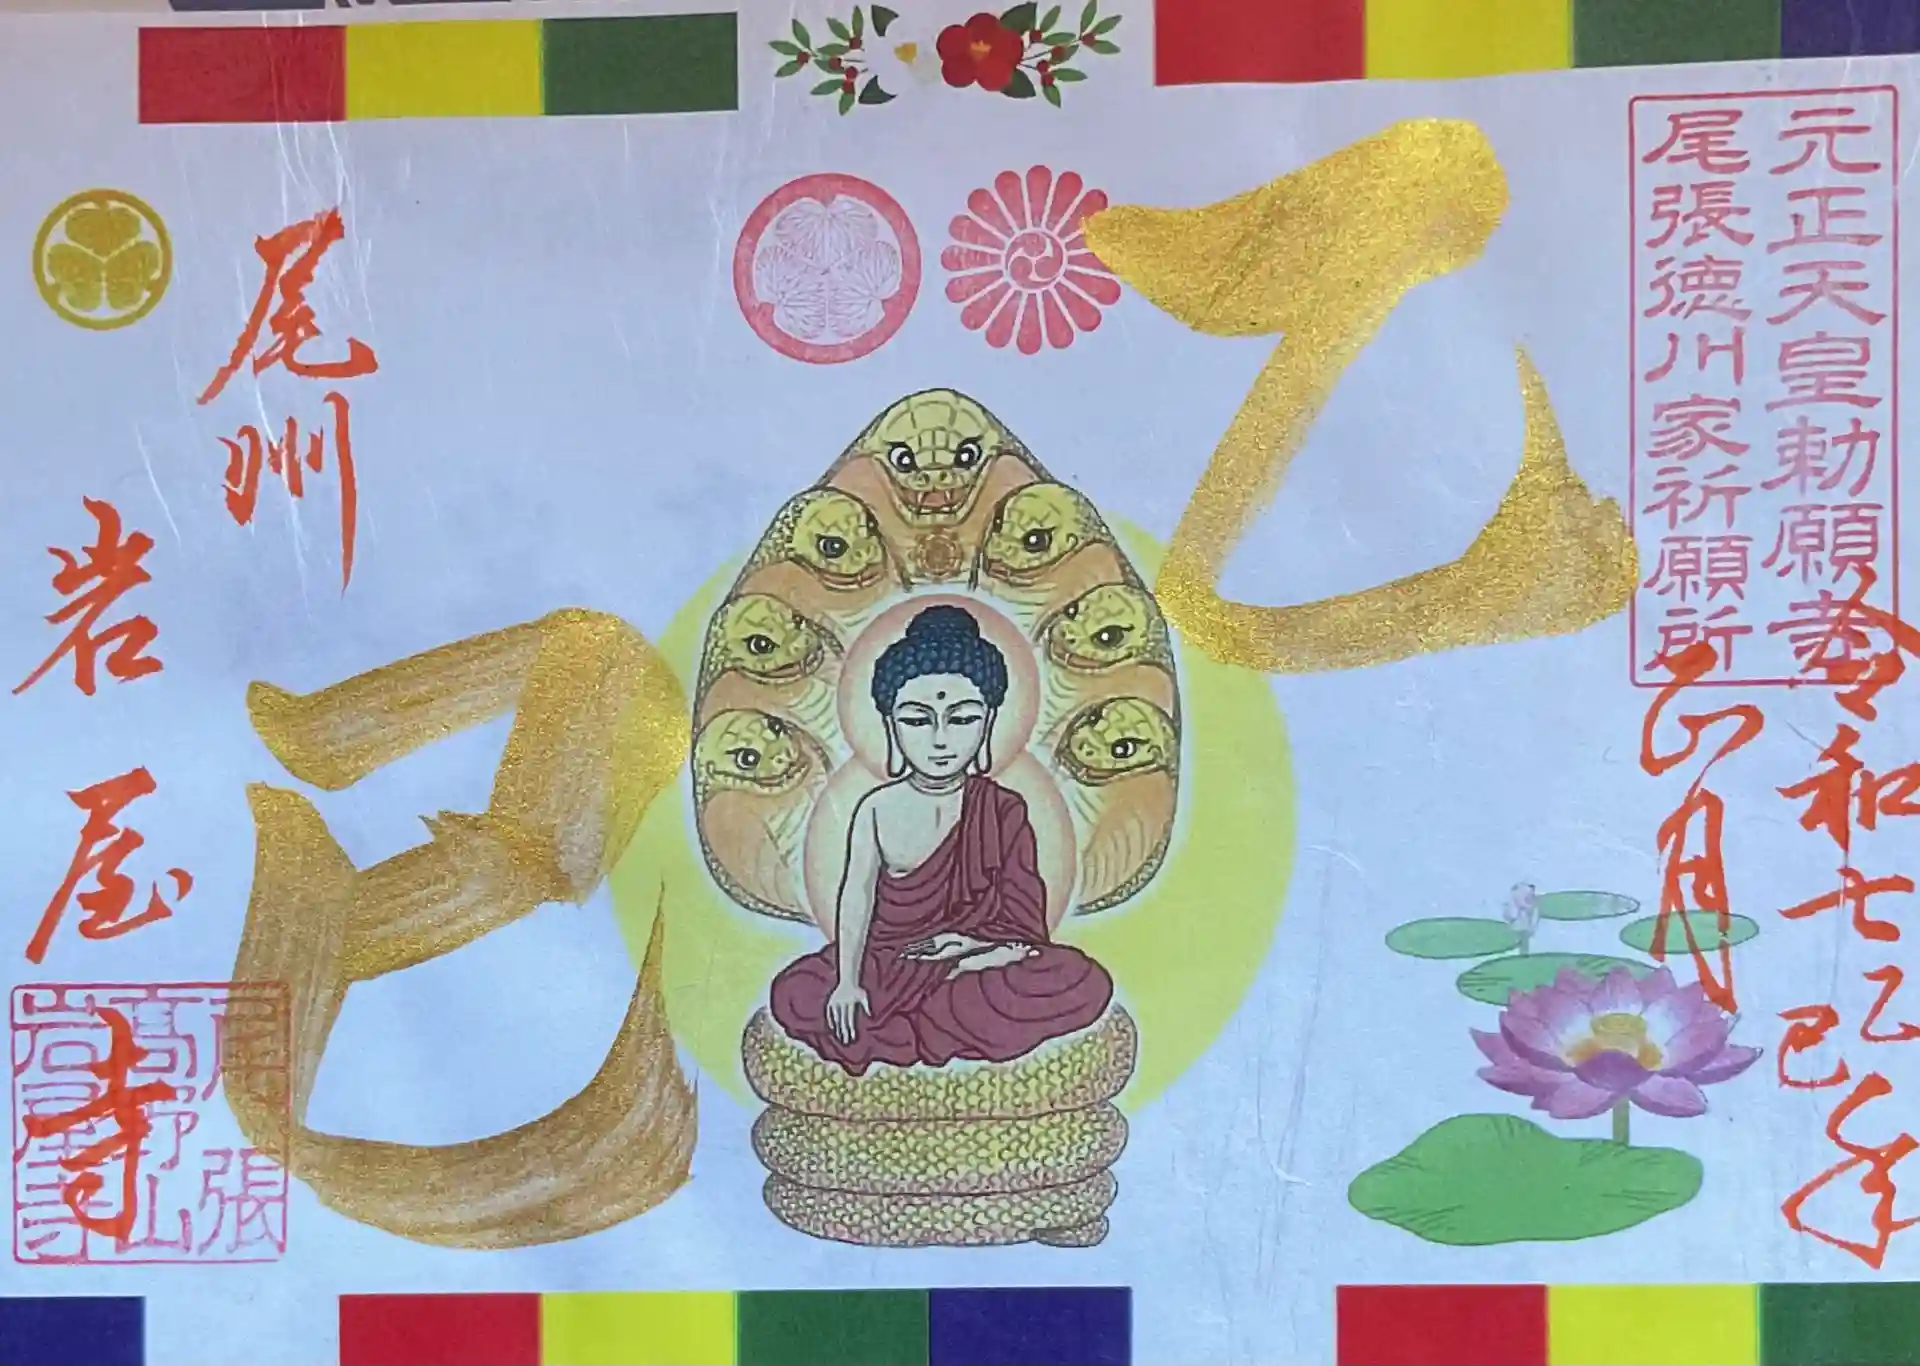 元正天皇勅願寺
尾張徳川家祈願所
令和七乙巳年
正月
乙
巳
尾州
岩屋寺
尾張
高野山
岩屋寺